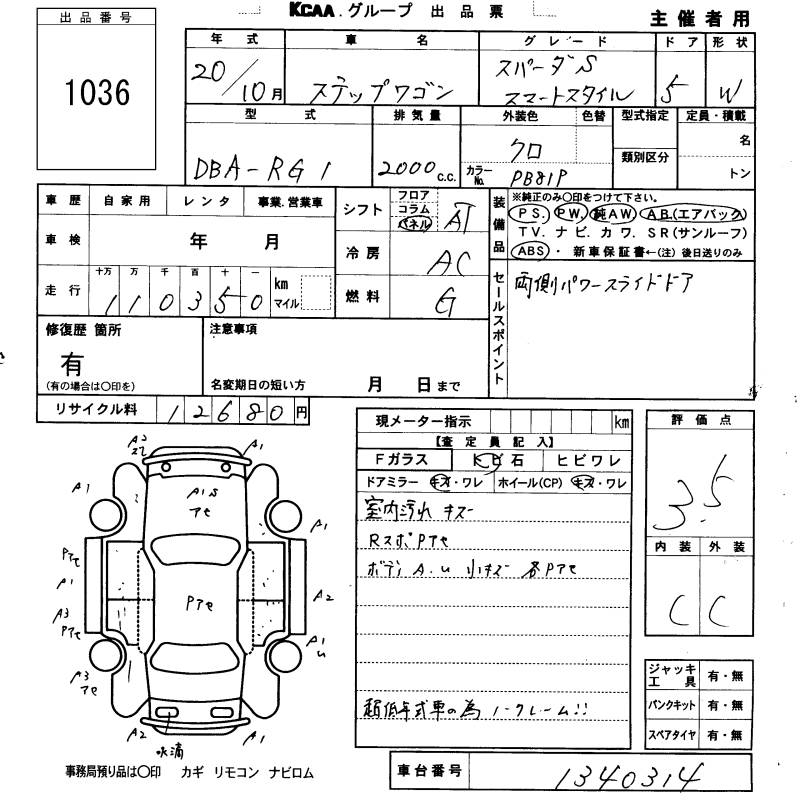 KCAA.グループ 出品票
主催者用
出品番号
1036
年式 車名 グレード ドア 形状
20/10月 ステップワゴン スパーダS スマートスタイル 5 W
型式 排気量 外装色 色替 型式指定 定員・積載
DBA-RG1 2000c.c. クロ 類別区分 名
カラーNo. PB81P トン
車歴 自家用 レンタ 事業.営業車
車検 年 月
走行 十万 万 千 百 十 一
110350 km マイル
シフト フロア コラム パネル AT
冷房 AC
燃料 G
装備品
※純正のみ〇印をつけて下さい。
P S. P W. 純AW A B.(エアバック)
T V. ナ ビ. カ ワ. S R (サンルーフ)
ABS・ 新車保証書←(注) 後日送りのみ
セールスポイント
両側パワースライドドア
修復歴 箇所
有
(有の場合は〇印を)
注意事項
名変期日の短い方 月 日まで
リサイクル料 12680円
現メーター指示 km
【査定員記入】
Fガラス 石 ヒビワレ
ドアミラー キズ・ワレ ホイール(CP) キズ・ワレ
室内汚れ キズ
RスポPアセ
ボディ A.U 小キズ 各Pアセ
超低年式車の為 ノークレーム!!
評価点
3.5
内装 外装
C C
ジャッキ工具 有・無
パンクキット 有・無
スペアタイヤ 有・無
車台番号 1340314
A2
A1
A1S
アセ
A1
A1
Pアセ
A1
Pアセ
A2
A3
Pアセ
A1
U
A3
アセ
A2
A1
水滴
事務局預り品は〇印 カギ リモコン ナビロム